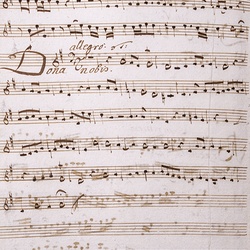 allegro
Dona nobis.